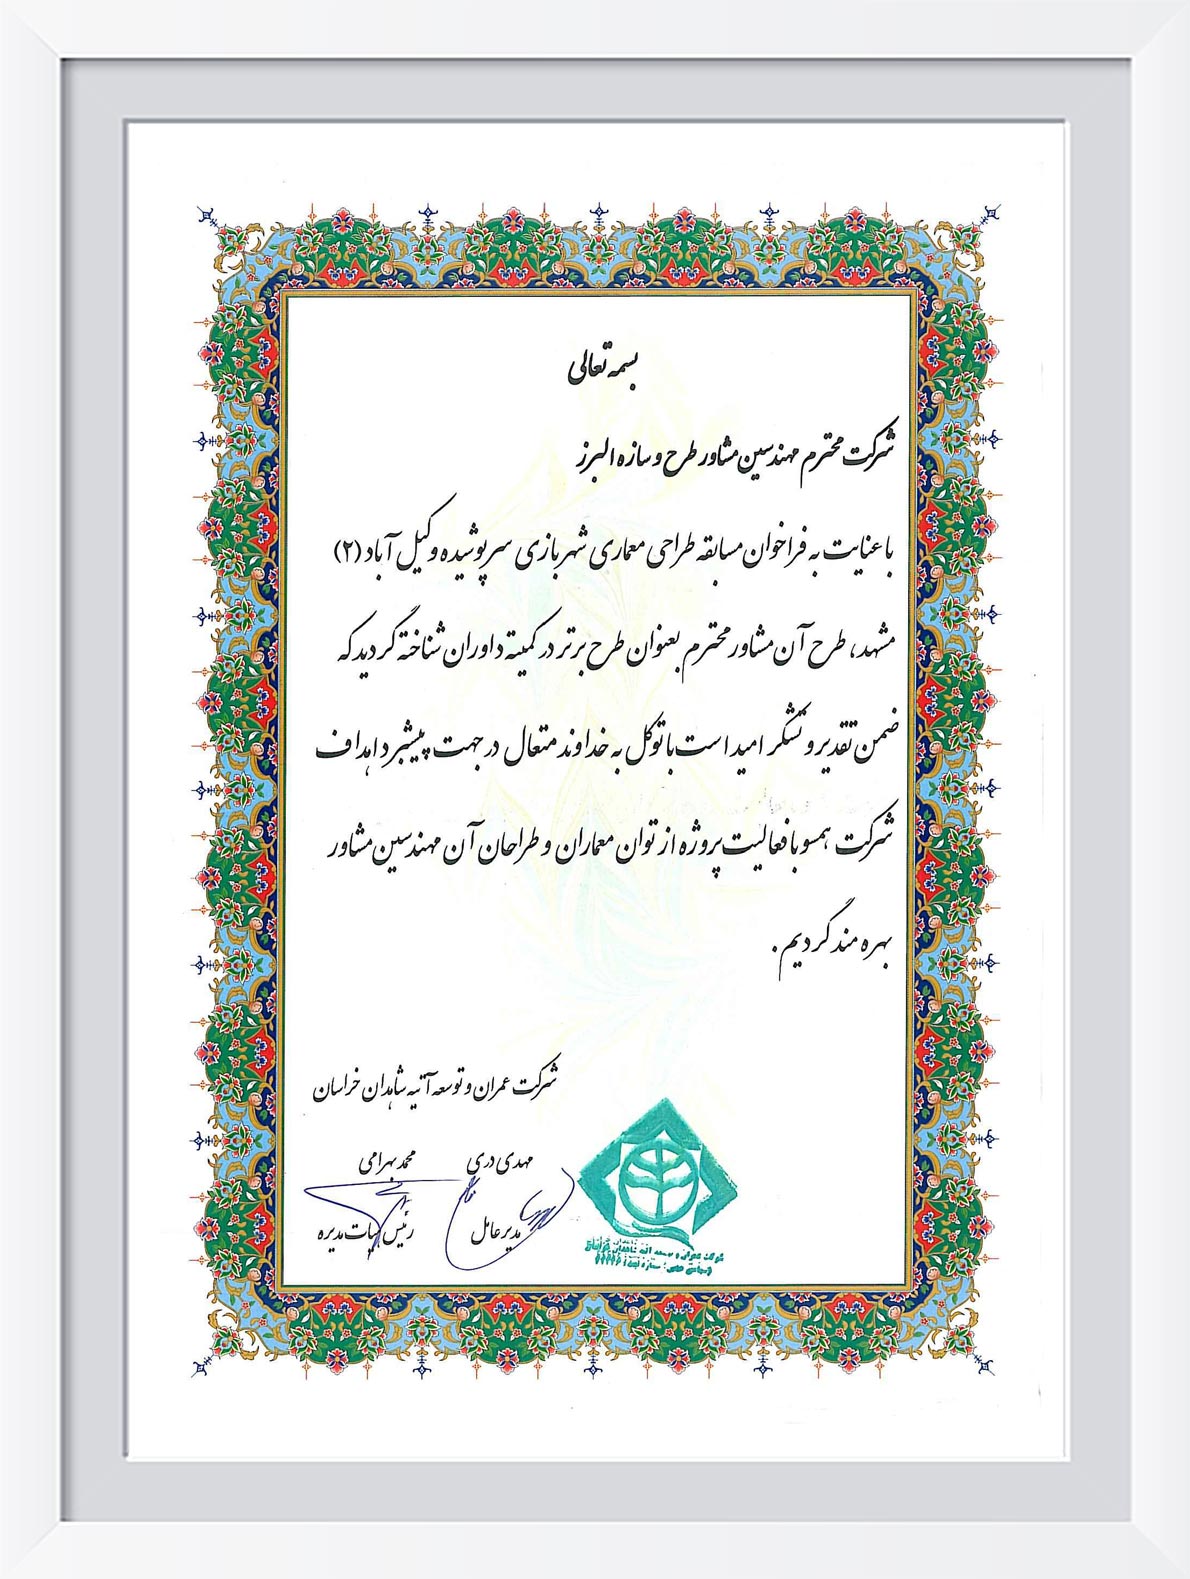 بسمه تعالی
شرکت محترم مهندسین مشاور طرح و سازه البرز
با عنایت به فراخوان مسابقه طراحی معماری شهربازی سرپوشیده وکیل آباد (۲)
مشهد، طرح آن مشاور محترم بعنوان طرح برتر در کمیته داوران شناخته گردید که
ضمن تقدیر و تشکر امید است با توکل به خداوند متعال در جهت پیشبرد اهداف
شرکت همسو با فعالیت پروژه از توان معماران و طراحان آن مهندسین مشاور
بهره مند گردیم.
شرکت عمران و توسعه آتیه شاهدان خراسان
مهدی دری
محمد بهرامی
مدیر عامل
رئیس هیات مدیره
شرکت عمران و توسعه آتیه شاهدان خراسان